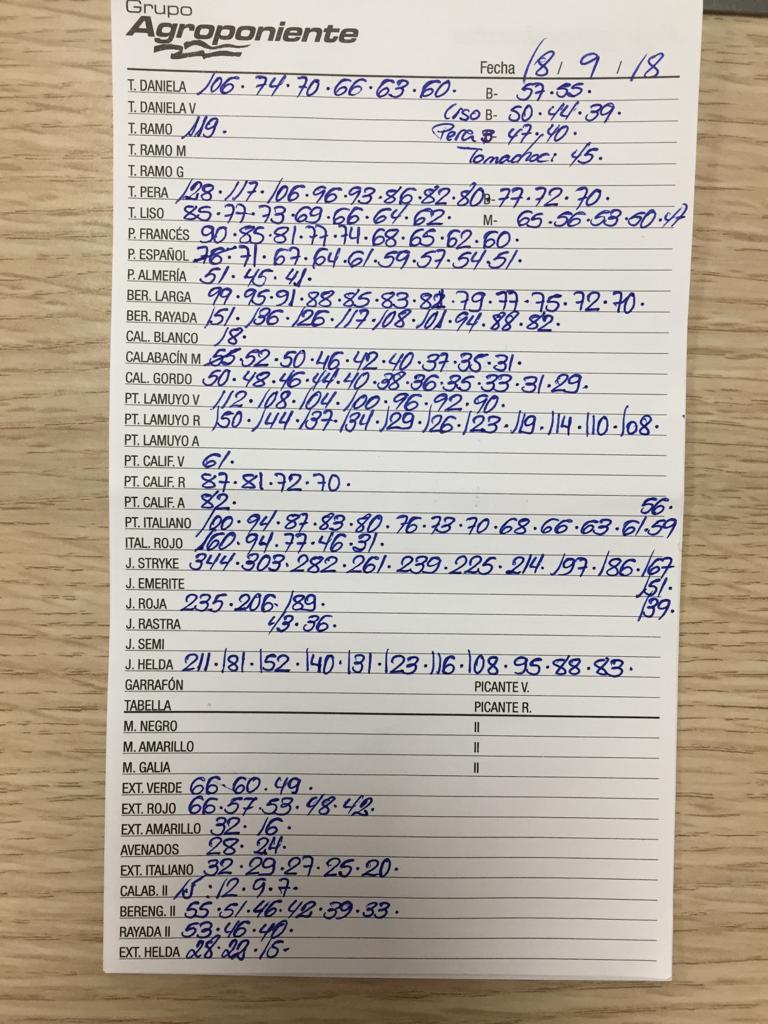 Grupo
Agroponiente
Fecha 18 / 9 / 18
T. DANIELA 106. 74. 70. 66. 63. 60. B- 57.55.
T. DANIELA V Liso B- 50.44.39.
T. RAMO 119. Pera B 47.40.
T. RAMO M Tomachoc: 45.
T. RAMO G
T. PERA 128. 117. 106. 96. 93. 86. 82. 80. B- 77. 72. 70.
T. LISO 85. 77. 73. 69. 66. 64. 62. M- 65. 56. 53. 50. 47
P. FRANCÉS 90. 85. 81. 77. 74. 68. 65. 62. 60.
P. ESPAÑOL 78. 71. 67. 64. 61. 59. 57. 54. 51.
P. ALMERÍA 51. 45. 41.
BER. LARGA 99. 95. 91. 88. 85. 83. 82. 79. 77. 75. 72. 70.
BER. RAYADA 151. 136. 126. 117. 108. 101. 94. 88. 82.
CAL. BLANCO 18.
CALABACÍN M 55. 52. 50. 46. 42. 40. 37. 35. 31.
CAL. GORDO 50. 48. 46. 44. 40. 38. 36. 35. 33. 31. 29.
PT. LAMUYO V 112. 108. 104. 100. 96. 92. 90.
PT. LAMUYO R 150. 144. 137. 134. 129. 126. 123. 119. 114. 110. 108.
PT. LAMUYO A
PT. CALIF. V 61.
PT. CALIF. R 87. 81. 72. 70.
PT. CALIF. A 82. 56.
PT. ITALIANO 100. 94. 87. 83. 80. 76. 73. 70. 68. 66. 63. 61. 59
ITAL. ROJO 160. 94. 77. 46. 31.
J. STRYKE 344. 303. 282. 261. 239. 225. 214. 197. 186. 167
J. EMERITE 151.
J. ROJA 235. 206. 189. 139.
J. RASTRA 43. 36.
J. SEMI
J. HELDA 211. 181. 152. 140. 131. 123. 116. 108. 95. 88. 83.
GARRAFÓN PICANTE V.
TABELLA PICANTE R.
M. NEGRO II
M. AMARILLO II
M. GALIA II
EXT. VERDE 66. 60. 49.
EXT. ROJO 66. 57. 53. 48. 42.
EXT. AMARILLO 32. 16.
AVENADOS 28. 24.
EXT. ITALIANO 32. 29. 27. 25. 20.
CALAB. II 15. 12. 9. 7.
BERENG. II 55. 51. 46. 42. 39. 33.
RAYADA II 53. 46. 40.
EXT. HELDA 28. 23. 15.